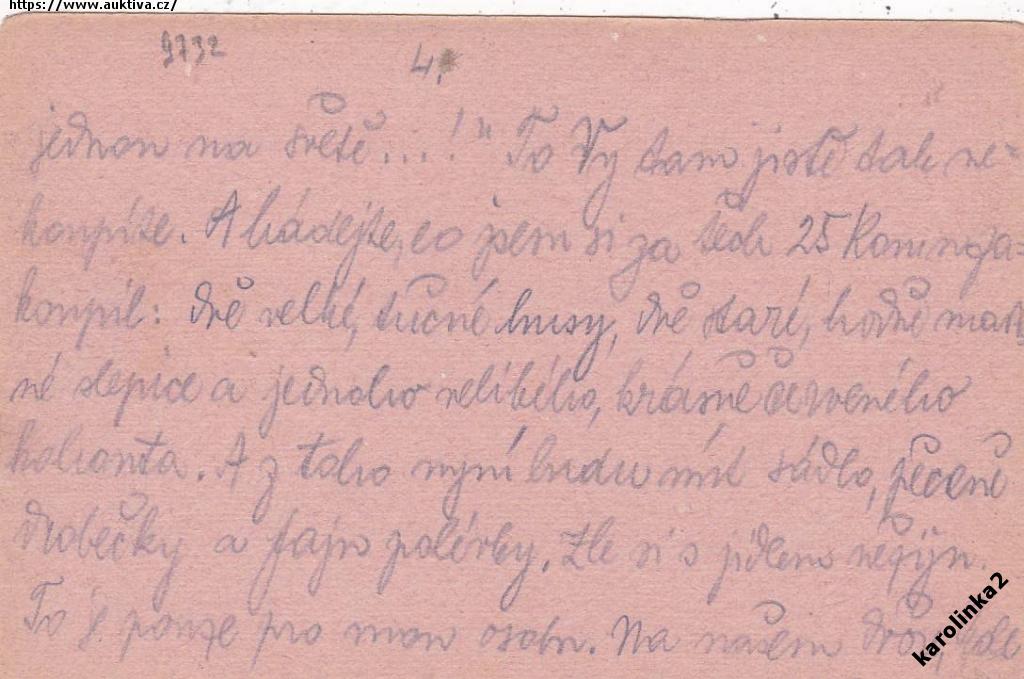 https://www.auktiva.cz/
9732
4.
jednou na světě...!" To Vy tam jistě tak ne-
koupíte. A hádejte, co jsem si za těch 25 Korun
koupil: dvě velké, tučné husy, dvě staré, hodně mast
né slepice a jednoho velikého, krásně červeného
kohouta. A z toho nyní budu míti sádlo, pečeně
drobečky a fajn polévky. Zle si s jídlem
To je pouze pro mou osobu. Na našem dvoře, kde
karolinka2